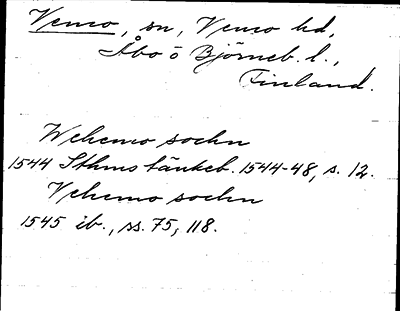 Vemo, sn, Vemo hd,
Åbo o Björneb. l.,
Finland.
Wehemo sochn
1544 Sthms tänkeb. 1544-48, s. 12.
Vehemo sochn
1545 ib., ss. 75, 118.